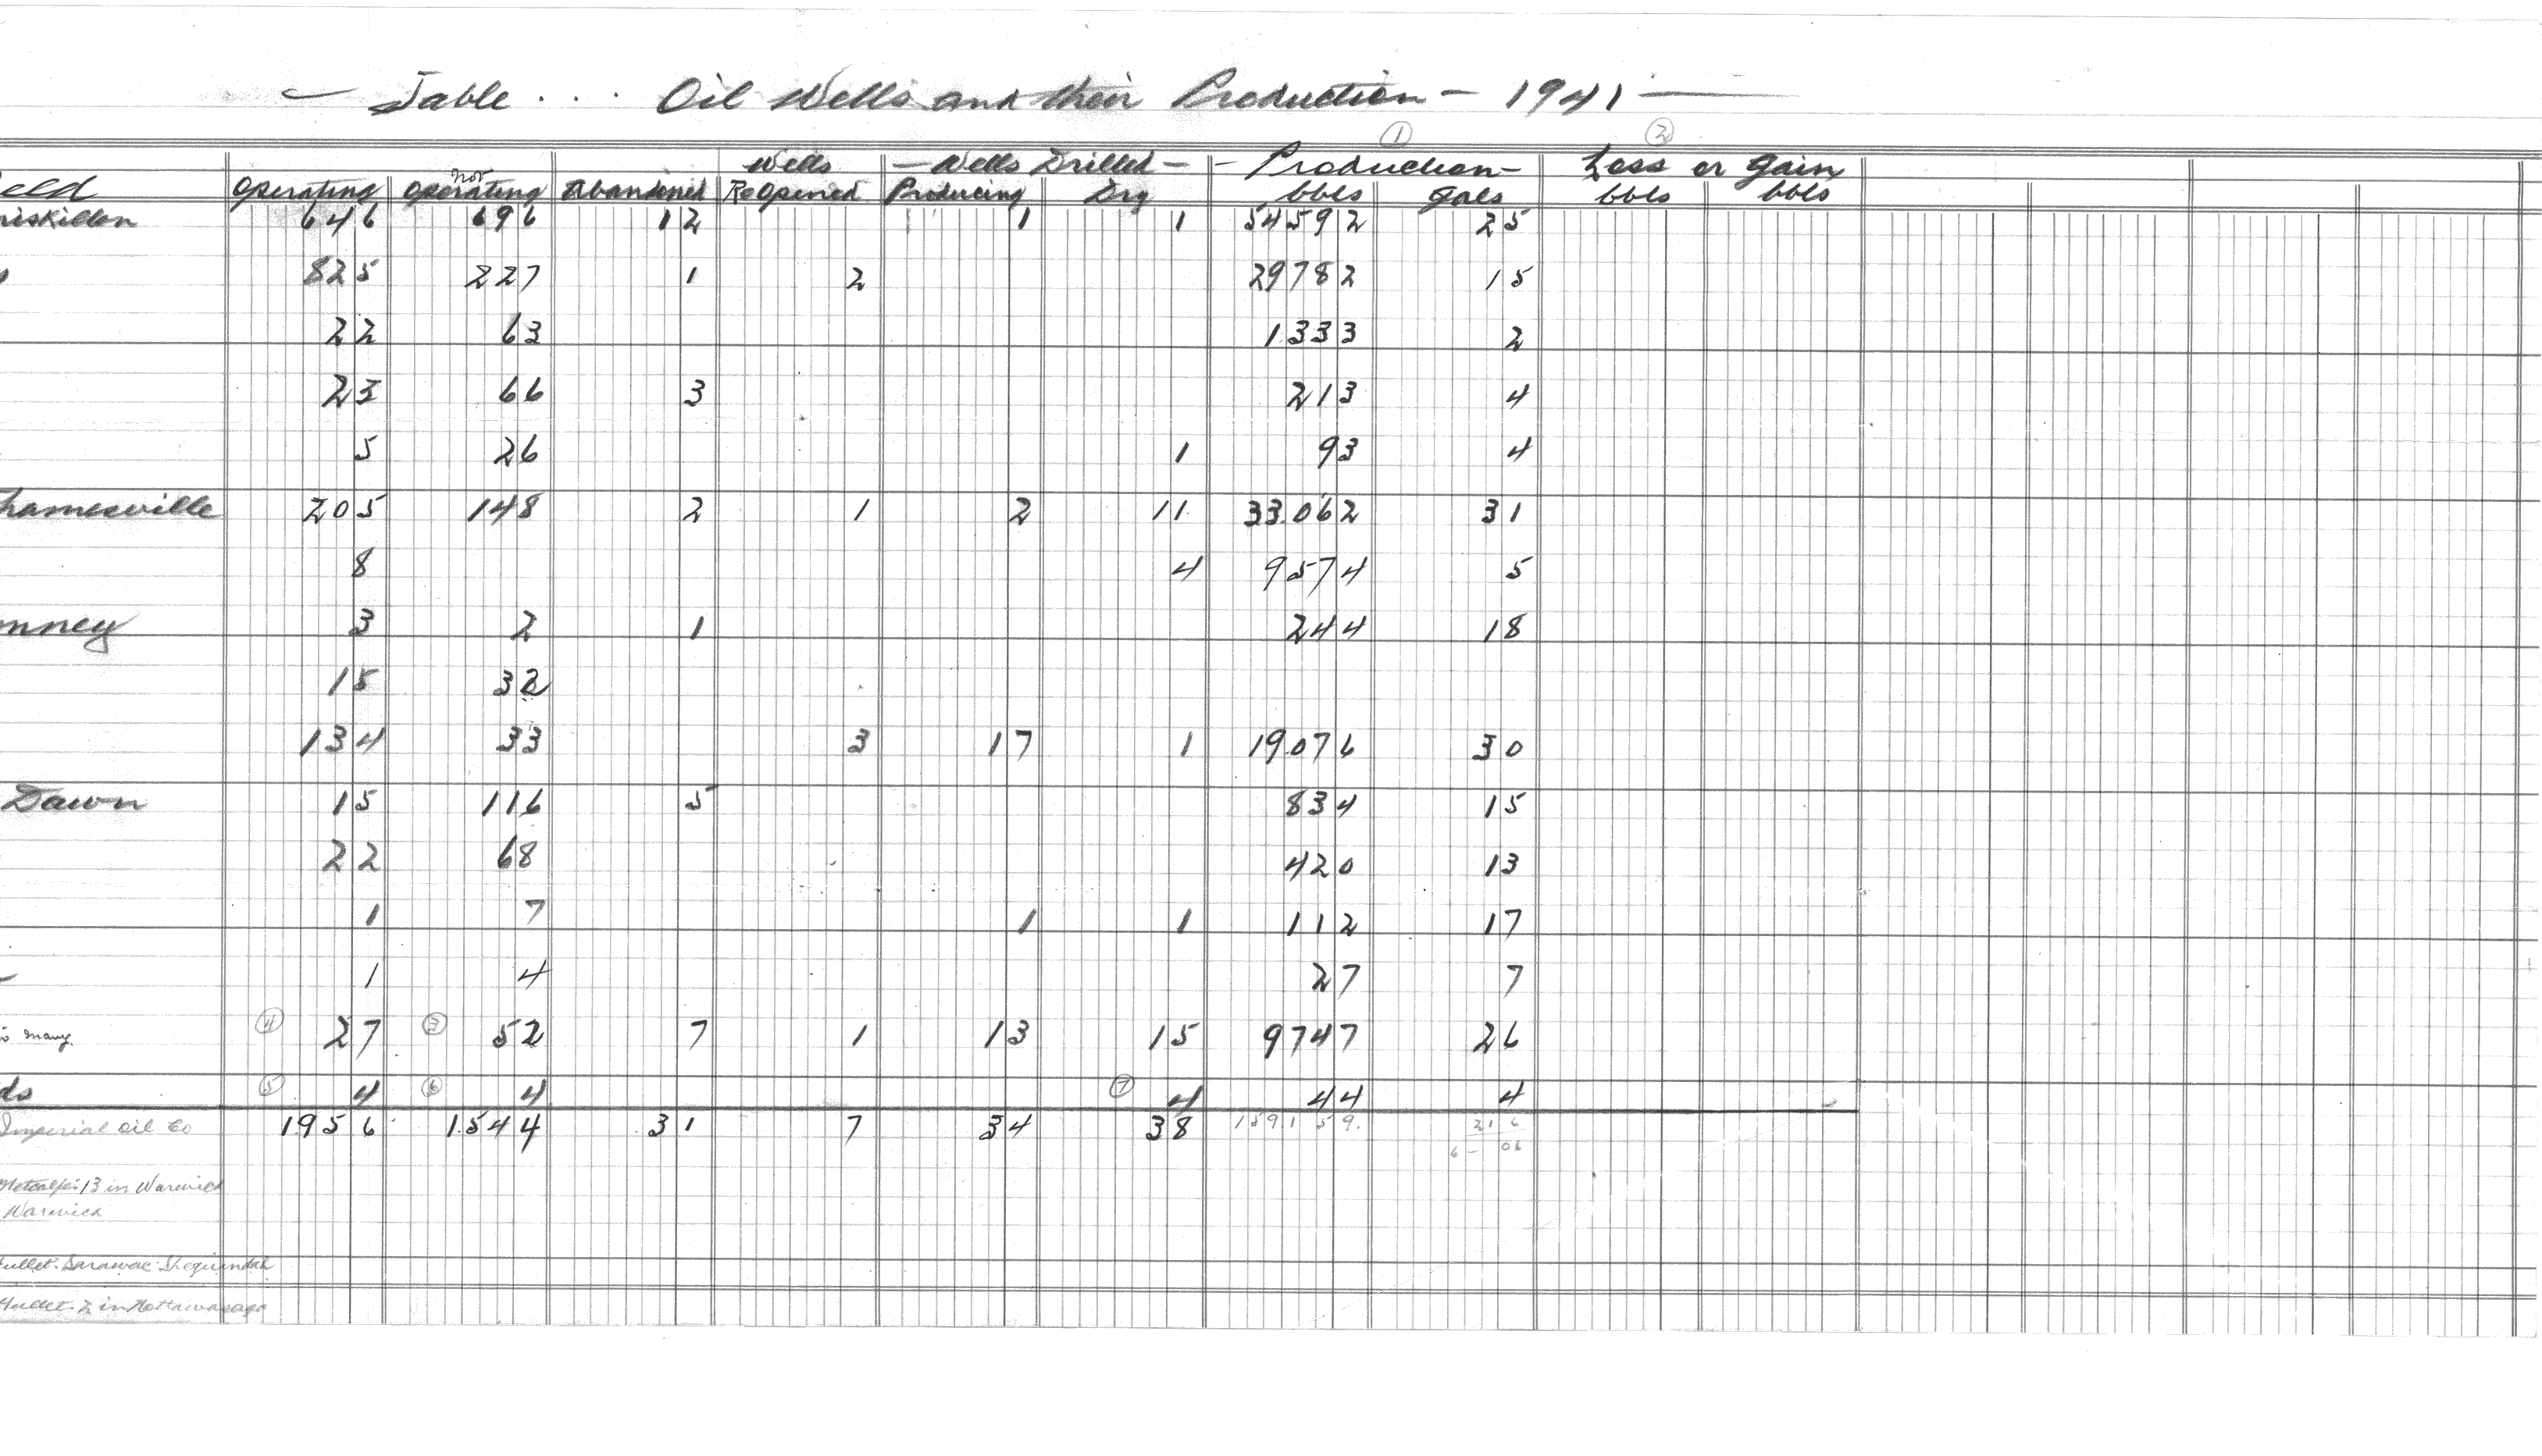 — Table . . . Oil Wells and their Production — 1941 —
① ②
Wells — Wells Drilled — — Production — Loss or Gain
eld Operating not Operating Abandoned ReOpened Producing Dry bbls gals bbls bbls
niskillen 646 696 12 1 1 54592 25
825 227 1 2 29782 15
22 63 1333 2
23 66 3 213 4
5 26 1 93 4
hamesville 205 148 2 1 2 11 33062 31
8 4 9574 5
mney 3 2 1 244 18
15 32
134 33 3 17 1 19076 30
Dawn 15 116 5 834 15
22 68 420 13
1 7 1 1 112 17
1 4 27 7
many ④ 27 ③ 52 7 1 13 15 9747 26
ds ⑤ 4 ⑥ 4 ⑦ 4 44 4
Imperial Oil Co 1956 1544 31 7 34 38 159159 216
6 — 06
Metcalfe: 13 in Warwick
Warwick
ullet. Sarawac Sheguindah
Hullet. 2 in Nottawasaga